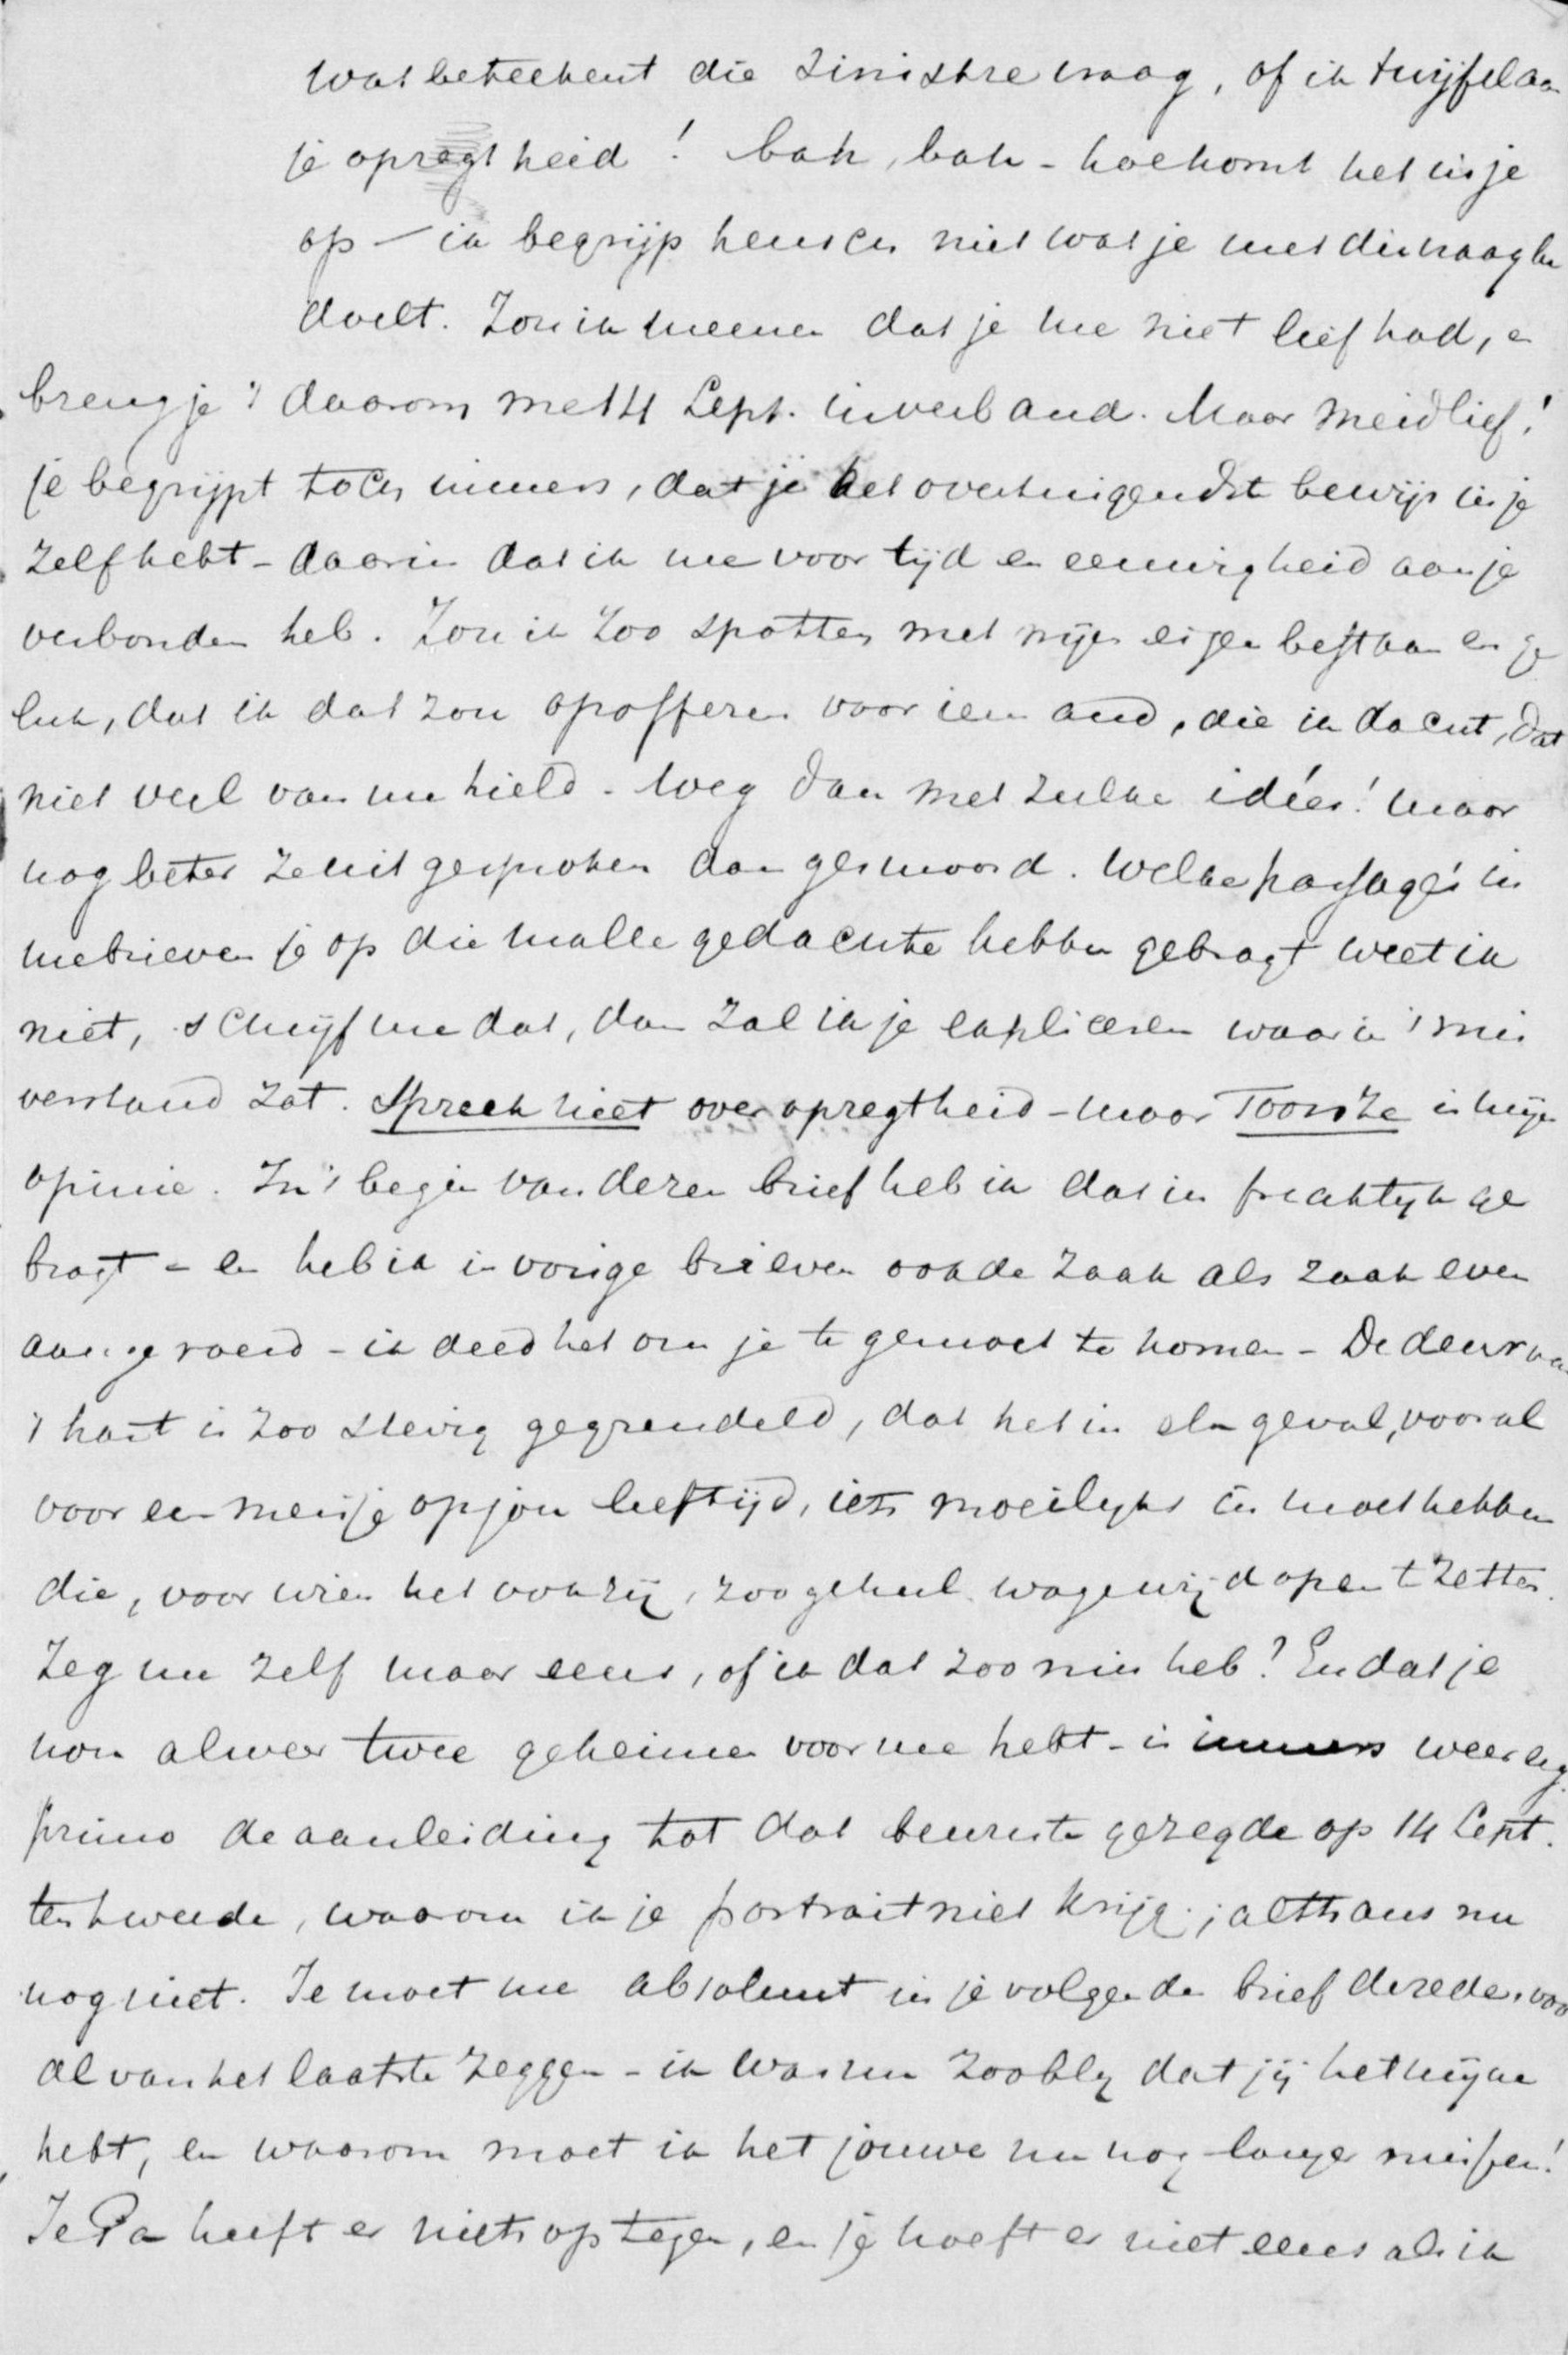 Wat beteekent die sinistre vraag, of ik twijfel aan
je opregtheid! bah, bah - hoe komt het in je
op - ik begrijp heusch niet wat je met die vraag be
doelt. Zou ik meenen dat je me niet lief had, en
breng je 't daarom met 14 Sept. in verband. Maar meidlief!
je begrijpt toch immers, dat je het overtuigendste bewijs in je
zelf hebt - daarin dat ik me voor tijd en eeuwigheid aan je
verbonden heb. Zou ik zoo spotten met mijn eigen bestaan en ge
luk, dat ik dat zou opofferen voor iemand, die ik dacht, dat
niet veel van me hield - Weg dan met zulke idées! maar
nog beter ze uitgesproken dan gesmoord. Welke passage's in
me brieven je op die malle gedachte hebben gebragt weet ik
niet, schrijf me dat, dan zal ik je expliceren waar in 't mis
verstand zat. Spreek niet over opregtheid - maar Toon ze is mijn
opinie. In 't begin van dezen brief heb ik dat in praktijk ge
bragt - en heb ik in vorige brieven ook de zaak als zaak even
aangeroerd - ik deed het om je te gemoet te komen - De deur van
't hart is zoo stevig gegrendeld, dat het in elk geval, vooral
voor een meisje op jou leeftijd, iets moeilijks in moet hebben
die, voor wien het ook zij, zoo geheel wagewijd open te zetten.
Zeg me zelf maar eens, of ik dat zoo mis heb? En dat je
nou alweer twee geheimen voor me hebt - is immers weer erg.
primo de aanleiding tot dat bewuste gezegde op 14 Sept.
ten tweede, waarom ik je portrait niet krijg; althans nu
nog niet. Je moet me absoluut in je volgende brief de reden voor
al van het laatste zeggen - ik was nu zoo blij dat jij het mijne
hebt, en waarom moet ik het jouwe nu nog langer missen!
Je Pa heeft er niets op tegen, en je hoeft er niet eens als ik